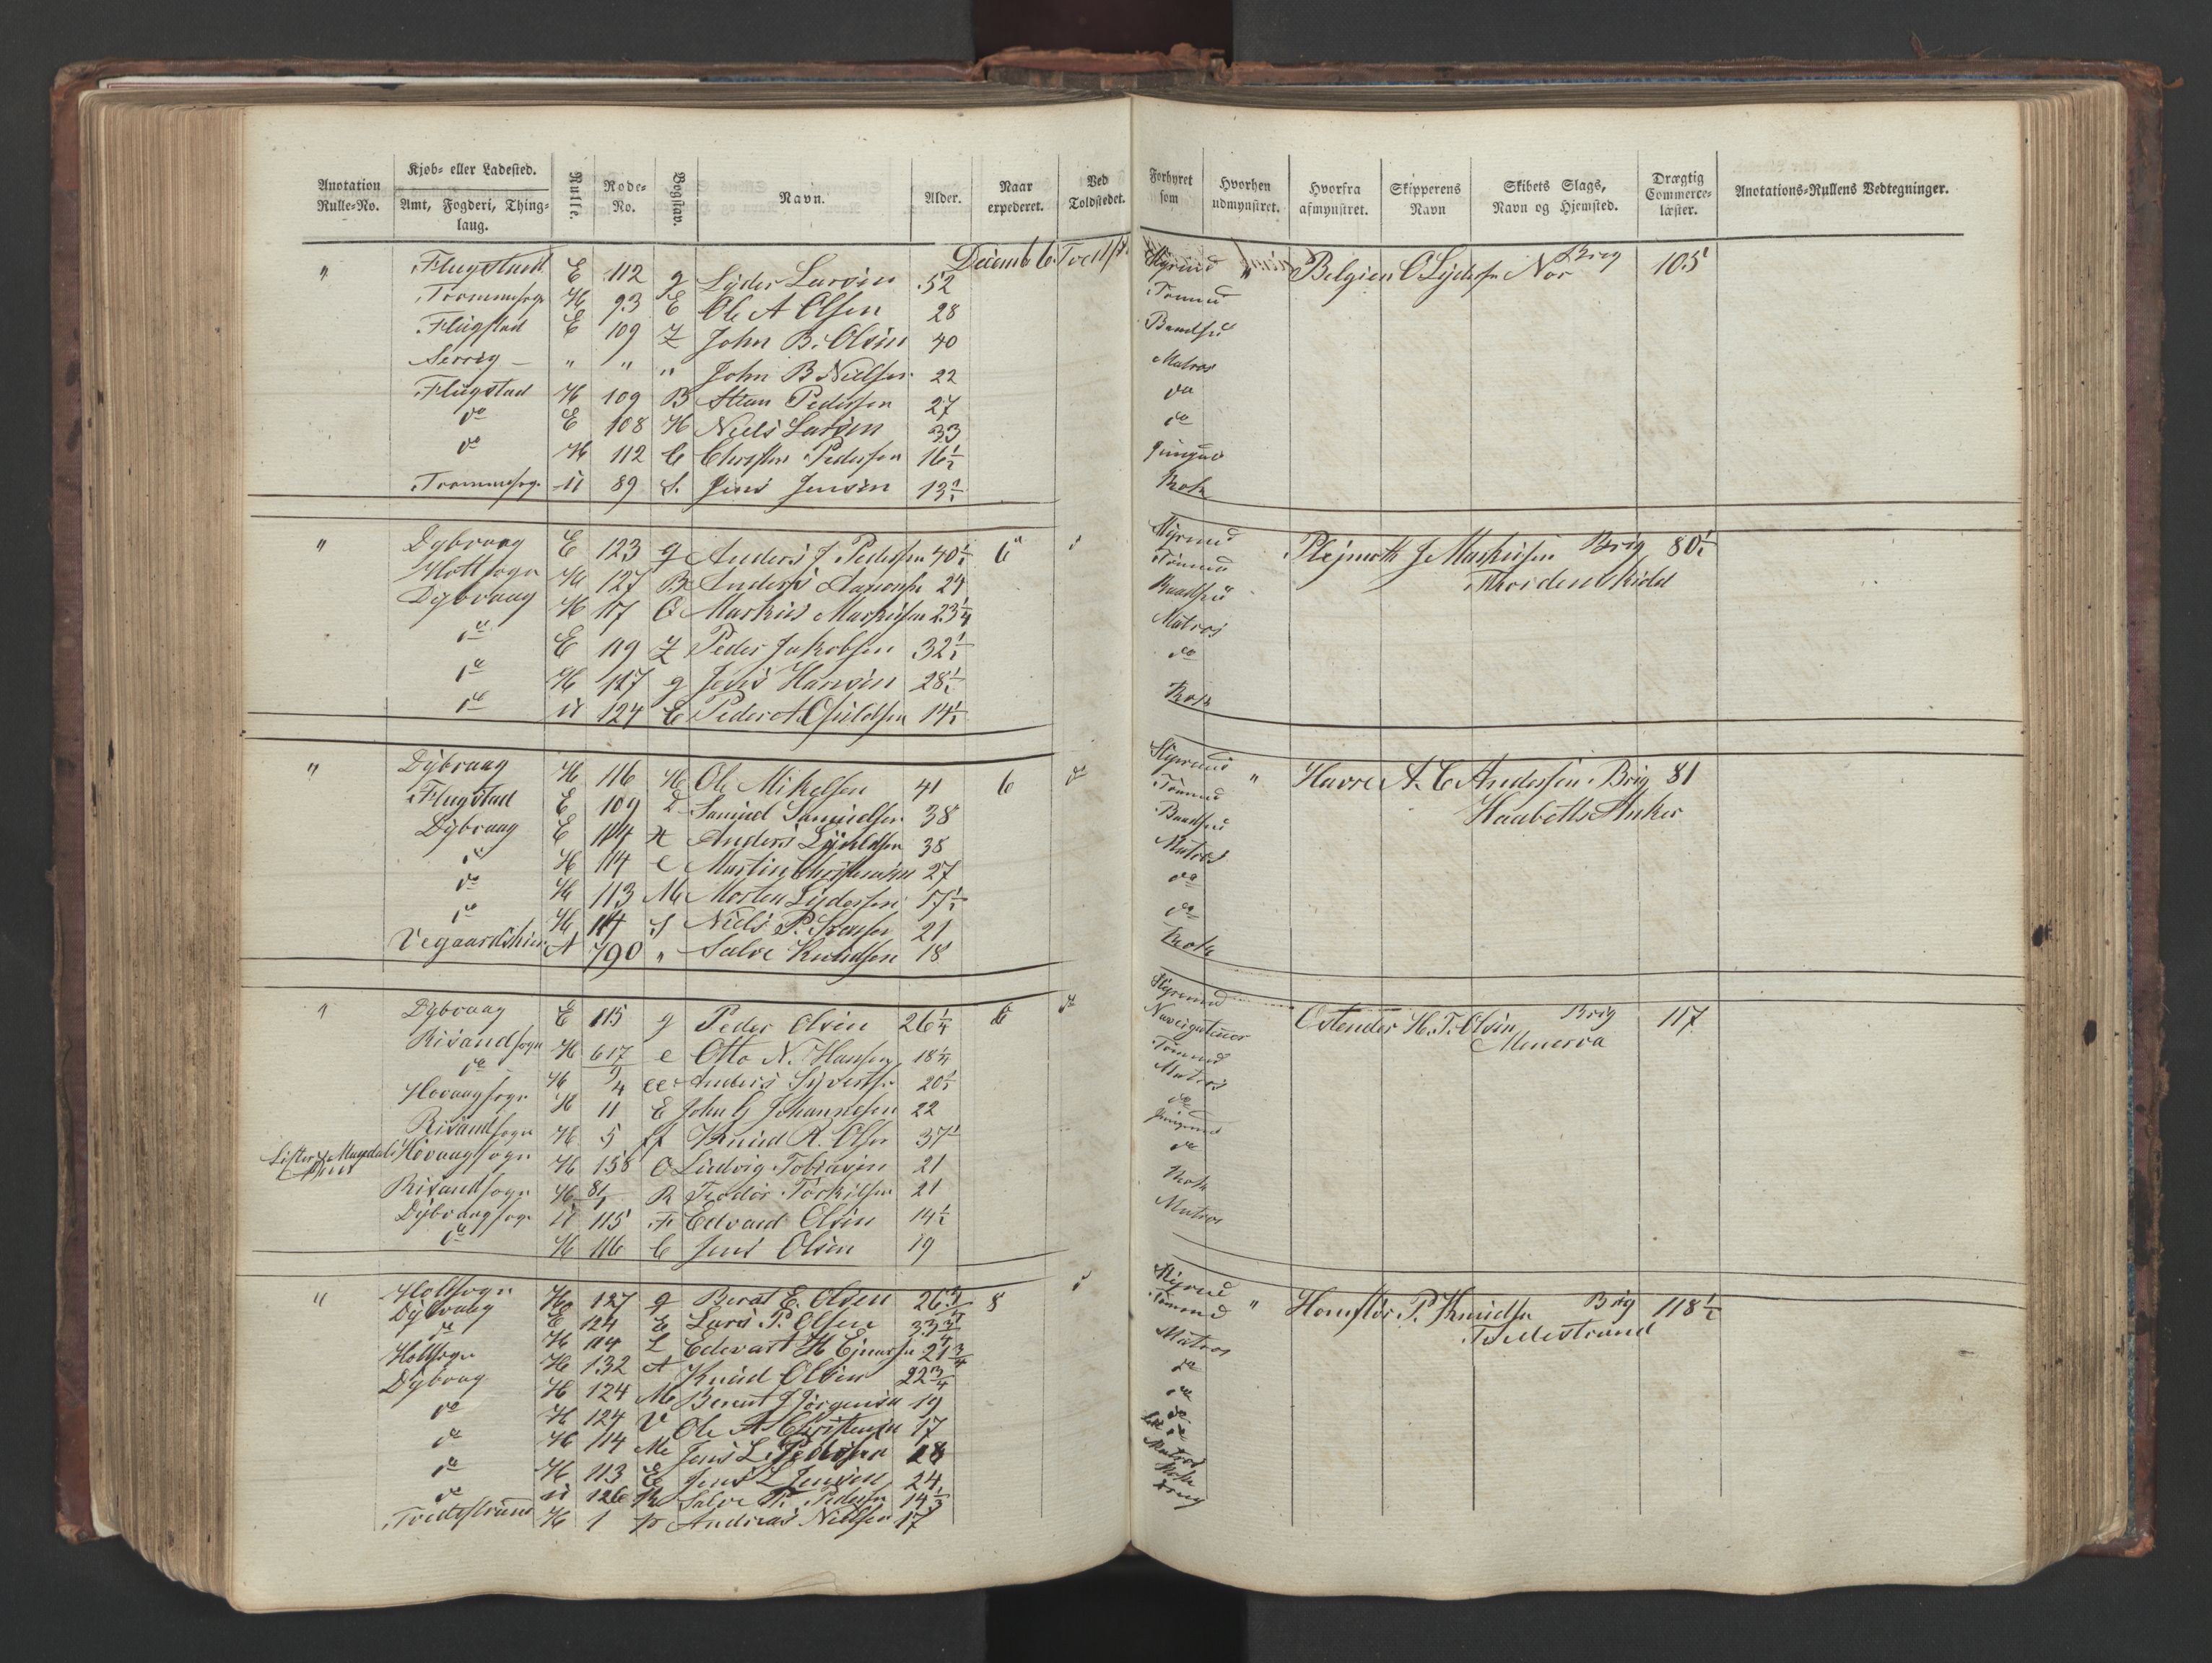 Anotation Rulle-No. | Kjøb- eller Ladested. Amt, Fogderi, Thinglaug. | Rulle. | Rode-No. | Bogstav. | Navn. | Alder. | Naar expederet. | Ved Toldstedet. | Forhyret som | Hvorhen udmynstret. | Hvorfra afmynstret. | Skipperens Navn | Skibets Slags, Navn og Hjemsted. | Drægtig Commerce-læster. | Anotations-Rullens Vedtegninger.
" Flugstad E 112 g Lyder Larsen 52 Decemb 6 Tvedst. Styrmd " Belgien O Lydersen Brig Nor 105
Trommesogn H 93 E Ole A Olsen 28 Tømmd
Flugstad E 109 Z John B. Olsen 40 Baadsm
" " " John B Nielsen 22 Matros
Flugstad H 109 B Pedersen 27 do
do E 108 H Niels Larsen 33 do
do H 112 C Christen Pedersen 16½ Jungm
Trommesogn U 89 S. Jens Jensen 13½ Kok
" Dybvaag E 123 g Anders J Pedersen 40½ 6 Styrmd Plejmoth J Markussen Brig 80½
Holt sogn H 127 B Anders 24 Tømmd Thordenskiold
Dybvaag H 117 O Markus Markussen 23¼ Baadsm
do E 119 Z Peder Jakobsen 32½ Matros
do H 117 g Jens Hansen 28½ do
do U 124 E Peder A 14½ Kok
" Dybvaag H 116 H Ole Mikelsen 41 6 do Styrmd " Havre A. C Andersen Brig 81
Flugstad E 109 D Samuel Samuelsen 38 Tømmd Haabetts Anker
Dybvaag E 114 H Anders 38 Baadsm
do H 114 e Martin Christensen 27 Matros
do H 113 M Morten Lydersen 17½ do
do H 114 Niels P. 21 do
Vegaardshei A 790 " Salve Knudsen 18 Kok
" Dybvaag E 115 g Peder Olsen 26¼ 6 do Styrmd Ostender H. T. Olsen Brig 117
Risandsogn H 617 e Otto N. Hansen 18¼ Navigateuer Menerva
do H 4 ee Anders 20½ Tømmd
Hovaagsogn H 11 E John G Johannesen 22 Matros
Risandsogn H 5 ff Knud R. Olsen 37½ do
Lister & Mandals Amt Hovaagsogn H 158 O Ludvig Tobiasen 21 Jungmd
Risandsogn H 81/1 R Teodor Torkilsen 21 do
Dybvaagsogn U 115 F Edvard Olsen 14½ Kok
do H 116 C Jens Olsen 19 Matros
" Holtsogn H 127 g Berat E. Olsen 26¾ 8 Styrmd " Homflør P. Knudsen Brig 118½
Dybvaag E 124 E Lars P. Olsen 33¾ Tømmd Tvedestrand
do H 114 L Edevart H Ejnarsen 21¾ Matros
Holtsogn H 132 A Knud Olsen 22¾ do
Dybvaag H 124 M Berent J Jørgensen 19 do
do H 124 V Ole A Christensen 17 do
do H 114 M Jens L. Pedersen 28 do
do H 113 E Jens L Jensen 24 Matros
do U 126 R Salve Pedersen 14⅓ Kok
Tvedestrand H 1 Andreas Nielsen 17 Dreng